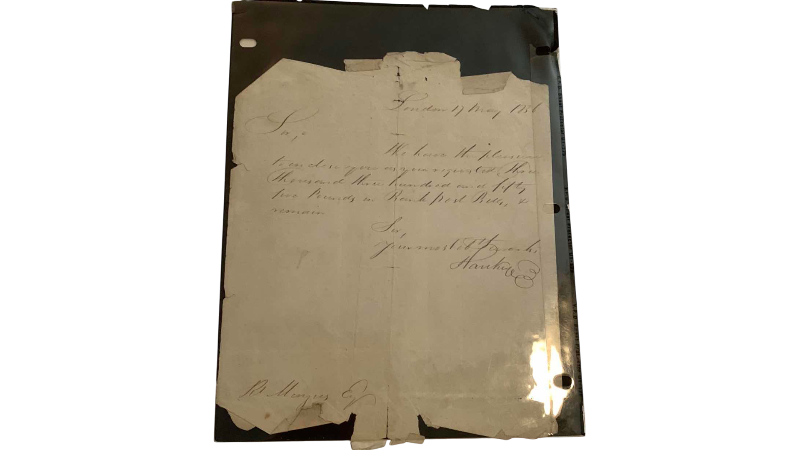 London 17 May 18
Sir,
We have the pleasure
to enclose you as you requested, Three
thousand three hundred and fifty
five Pounds in Bank Post Bills, &
remain
Sir,
your most Obt Servants
Esq